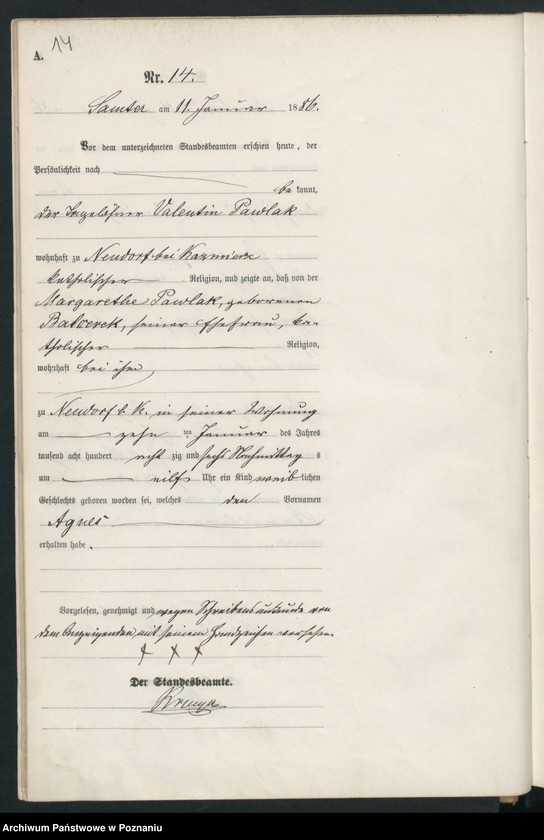 14
A.
Nr. 14.
Samter am 11. Januar 1886.
Vor dem unterzeichneten Standesbeamten erschien heute, der
Persönlichkeit nach
be kannt,
der Tagelöhner Valentin Pawlak
wohnhaft zu Neudorf bei Kazmierz
katholischer Religion, und zeigte an, daß von der
Margarethe Pawlak, geborenen
seiner Ehefrau, ka-
tholischer Religion,
wohnhaft bei ihm,
zu Neudorf b. K. in seiner Wohnung
am zehn ten Januar des Jahres
tausend acht hundert acht zig und sechs Nachmittag s
um eilf Uhr ein Kind weib lichen
Geschlechts geboren worden sei, welches den Vornamen
Agnes
erhalten habe.
Vorgelesen, genehmigt und wegen Schreibensunkunde von
dem Anzeigenden mit seinem Handzeichen versehen.
+ + +
Der Standesbeamte.
Archiwum Państwowe w Poznaniu